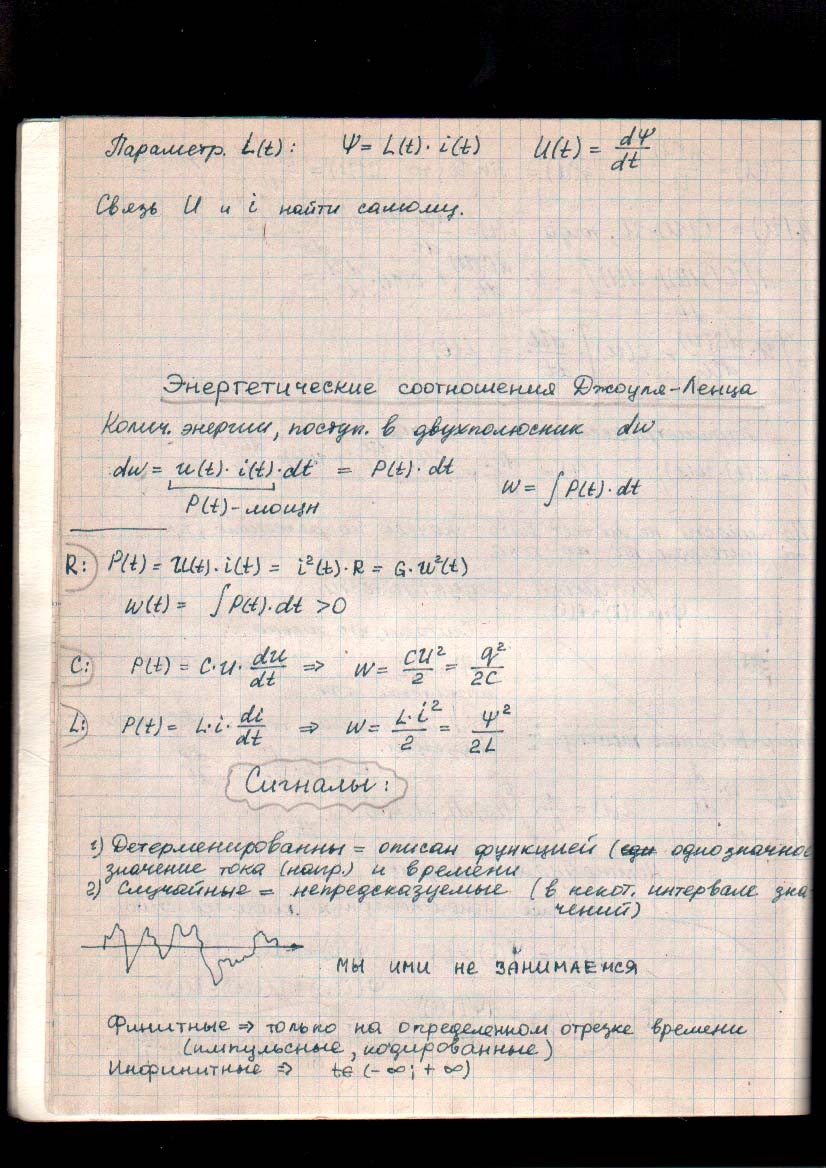 Параметр. L(t): Ψ = L(t)· i(t) U(t) = dΨ/dt
Связь U и i найти самому.
Энергетические соотношения Джоуля-Ленца
Колич. энергии, поступ. в двухполюсник dw
dw = u(t)· i(t)·dt = P(t)·dt
W = ∫P(t)·dt
P(t)-мощн
R: P(t) = U(t)·i(t) = i²(t)·R = G·U²(t)
W(t) = ∫P(t)·dt >0
C: P(t) = C·U·dU/dt ⇒ W = CU²/2 = q²/2C
L: P(t) = L·i·di/dt ⇒ W = L·i²/2 = Ψ²/2L
Сигналы:
1) Детерменированны = описан функцией ( однозначное
значение тока (напр.) и времени
2) Случайные = непредсказуемые (в некот. интервале зна-
чений)
мы ими не занимаемся
Финитные ⇒ только на определенном отрезке времени
(импульсные, кодированные)
Инфинитные ⇒ t∈(-∞; +∞)